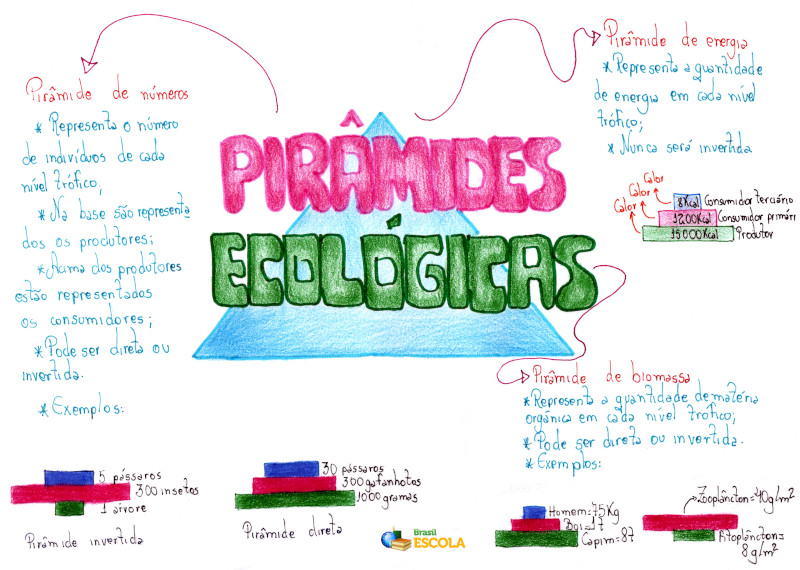 PIRÂMIDES
ECOLÓGICAS
Pirâmide de números
* Representa o número
de indivíduos de cada
nível trófico;
* Na base são representa
dos os produtores;
* Acima dos produtores
estão representados
os consumidores;
* Pode ser direta ou
invertida.
* Exemplos:
5 pássaros
300 insetos
1 árvore
Pirâmide invertida
30 pássaros
300 gafanhotos
1000 gramas
Pirâmide direta
Pirâmide de energia
* Representa a quantidade
de energia em cada nível
trófico;
* Nunca será invertida
Calor
Calor
Calor
8Kcal Consumidor terciário
1200Kcal Consumidor primári
15000Kcal Produtor
Pirâmide de biomassa
* Representa a quantidade de matéria
orgânica em cada nível trófico;
* Pode ser direta ou invertida.
* Exemplos:
Homem=75Kg
Boi=1T
Capim=8T
Zooplâncton=40g/m²
Fitoplâncton=
8g/m²
Brasil
ESCOLA